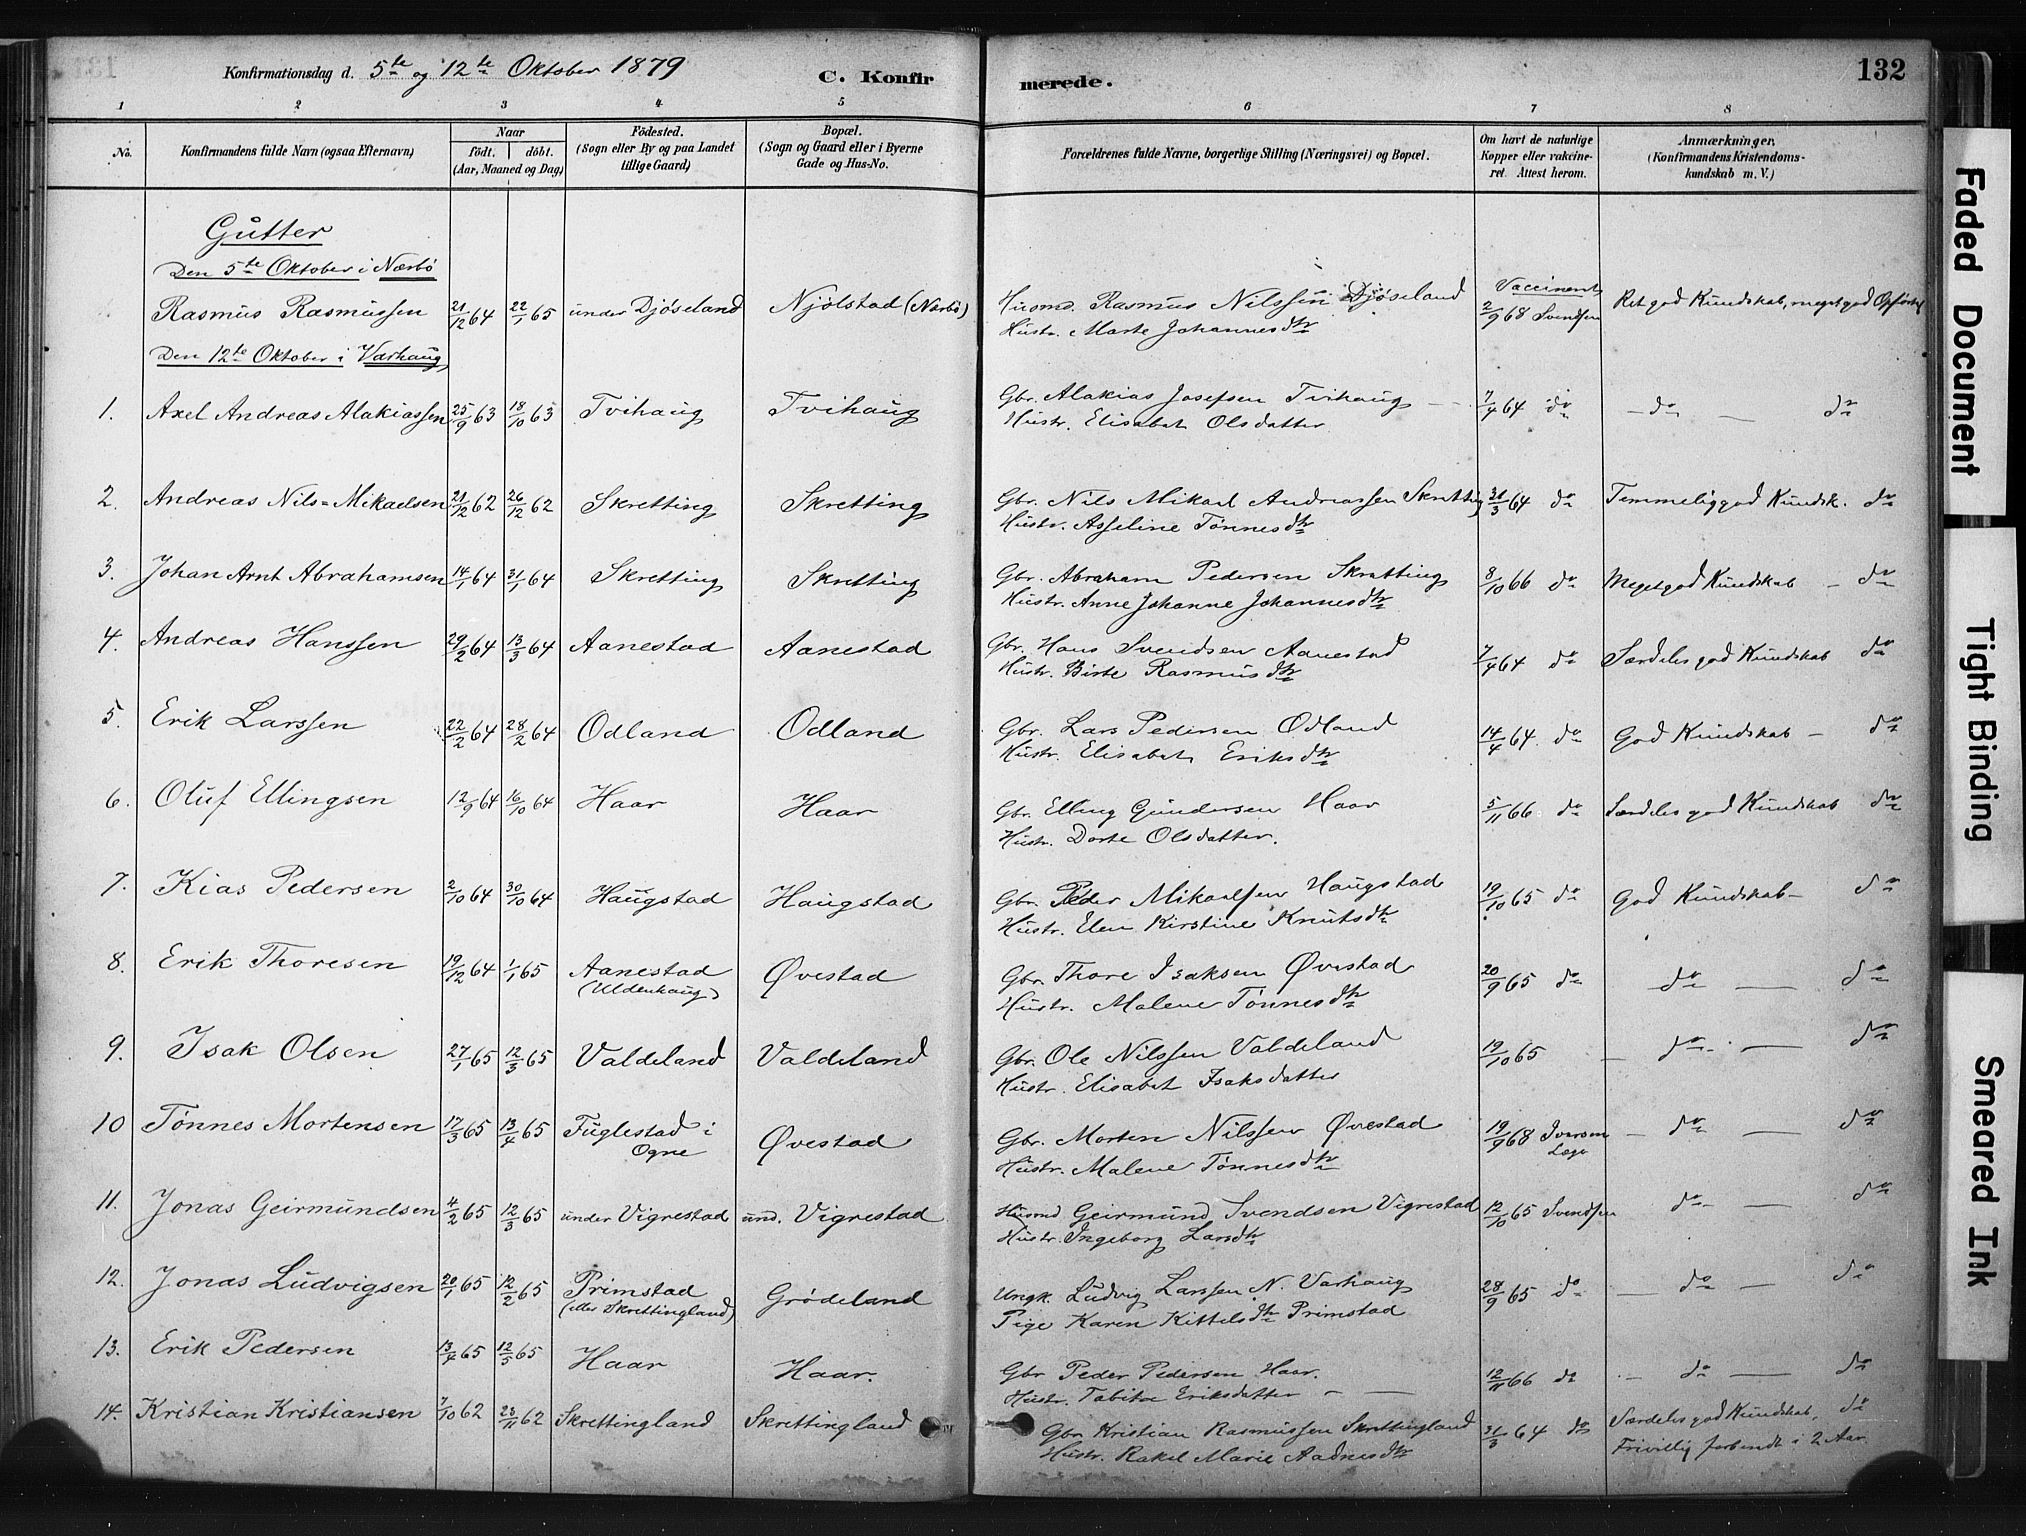 Konfirmationsdag d. 5te og 12te Oktober 1879 C. Konfirmerede. 132
1 2 3 4 5 6 7 8
No.
Konfirmandens fulde Navn (ogsaa Efternavn)
Naar
födt. döbt.
(Aar, Maaned og Dag)
Födested.
(Sogn eller By og paa Landet
tillige Gaard)
Bopæl.
(Sogn og Gaard eller i Byerne
Gade og Hus-No.
Forældrenes fulde Navne, borgerlige Stilling (Næringsvei) og Bopæl.
Om havt de naturlige
Kopper eller vakcine-
ret. Attest herom.
Anmærkninger.
(Konfirmandens Kristendoms-
kundskab m. V.)
Gutter
Den 5te Oktober i Nærbö
Rasmus Rasmussen 21/12 64 22/1 65 under Djöseland Njölstad (Nærbö) Husmd. Rasmus Nilssen Djöseland Vaccineret 2/9 68 Svendsen Ret god Kundskab, meget god Opførsel
Hustr. Marte Johannesdtr
Den 12te Oktober i Varhaug
1. Axel Andreas Alakiassen 25/9 63 18/10 63 Tvihaug Tvihaug Gbr. Alakias Josefsen Tvihaug 7/4 64 do — do — do
Hustr. Elisabet Olsdatter
2. Andreas Nils=Mikaelsen 21/12 62 26/12 62 Skretting Skretting Gbr. Nils Mikael Andreassen Skretting 31/3 64 do Temmelig god Kundsk. do
Hustr. Asseline Tönnesdtr
3. Johan Arnt Abrahamsen 14/1 64 31/1 64 Skretting Skretting Gbr. Abraham Pedersen Skretting 8/10 66 do Meget god Kundskab — do
Hustr. Anne Johanne Johannesdtr
4. Andreas Hanssen 29/2 64 13/3 64 Aanestad Aanestad Gbr. Hans Svendsen Aanestad 7/4 64 do Særdeles god Kundskab do
Hustr. Birte Rasmusdtr
5. Erik Larssen 22/2 64 28/2 64 Odland Odland Gbr. Lars Pedersen Odland 14/4 64. do God Kundskab — do
Hustr. Elisabet Eriksdtr
6. Oluf Ellingsen 12/9 64 16/10 64 Haar Haar Gbr. Elling Gundersen Haar 5/11 66 do Særdeles god Kundskab do
Hustr. Dorte Olsdatter.
7. Kias Pedersen 2/10 64 30/10 64 Haugstad Haugstad Gbr. Peder Mikaelsen Haugstad 19/10 65 do God Kundskab — do
Hustr. Elen Kirstine Knutsdtr
8. Erik Thoresen 19/12 64 1/1 65 Aanestad Øvestad Gbr. Thore Isaksen Øvestad 20/9 65 do do — do
(Uldenhaug)
Hustr. Malene Tönnesdtr
9. Isak Olsen 27/1 65 12/3 65 Valdeland Valdeland Gbr. Ole Nilssen Valdeland 19/10 65 — do — do
Hustr. Elisabet Isaksdatter
10 Tönnes Mortensen 17/3 65 13/4 65 Fuglestad i Øvestad Gbr. Morten Nilssen Øvestad 19/9 68 Iversen — do — do
Ogne
Læge
Hustr. Malene Tönnesdtr
11. Jonas Geirmundsen 4/2 65 12/3 65 under Vigrestad und. Vigrestad Husmd Geirmund Svendsen Vigrestad 12/10 65 Svendsen do — do
Hustr. Ingeborg Larsdtr
12. Jonas Ludvigsen 20/1 65 12/2 65 Primstad Grödeland Ungk. Ludvig Larssen N. Varhaug 28/9 65 do — do — do
(eller Skrettingland)
Pige Karen Kittelsdtr Primstad
13. Erik Pedersen 13/4 65 12/5 65 Haar Haar. Gbr Peder Pedersen Haar. 12/11 66 do — do — do
Hustr. Tabitta Eriksdatter —
14. Kristian Kristiansen 7/10 62 23/11 62 Skrettingland Skrettingland Gbr Kristian Rasmussen Skrettingland 31/3 64 do Særdeles god Kundskab, do
Hustr. Rakel Marie Aadnesdtr Frivillig forbindt i 2 Aar.
Faded Document
Tight Binding
Smeared Ink